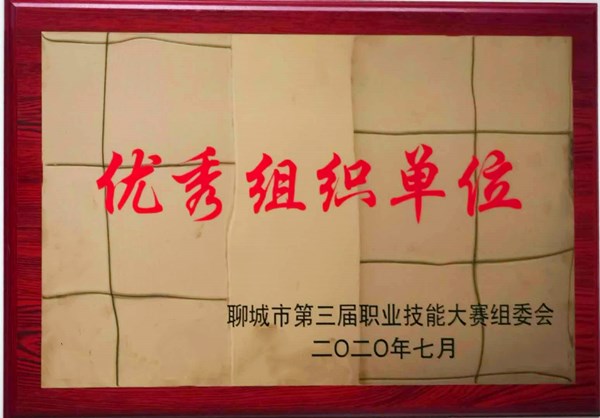 优秀组织单位
聊城市第三届职业技能大赛组委会
二〇二〇年七月